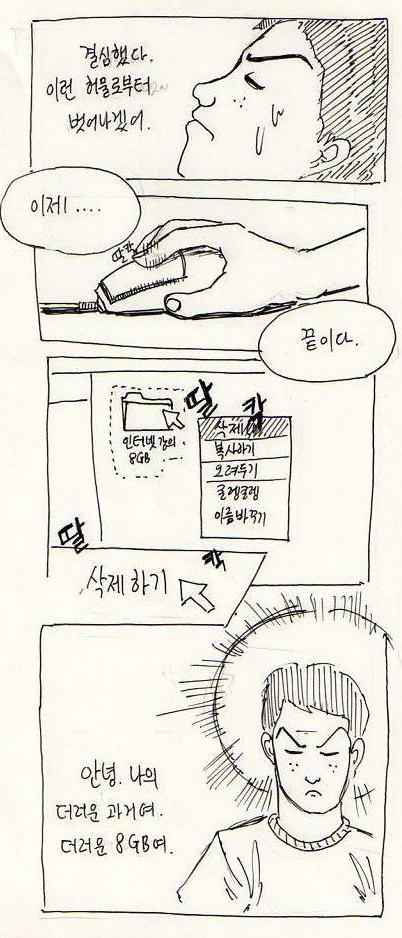 결심했다.
이런 허물로부터
벗어나겠어.
이제 ....
딸칵
끝이다.
딸 칵
인터넷 강의
8GB
삭제
복사하기
오려두기
굴렝굴렝
이름바꾸기
딸 칵
삭제하기
안녕. 나의
더러운 과거여.
더러운 8GB여.